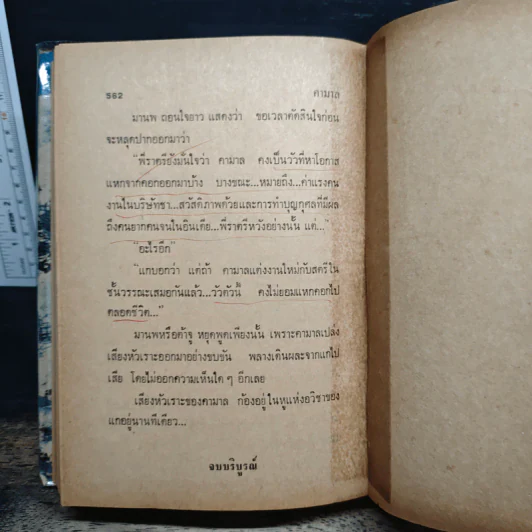 562
คามาล
มานพ ถอนใจยาว แสดงว่า ขอเวลาตัดสินใจก่อน
จะหลุดปากออกมาว่า
"พี่ราตรียังมั่นใจว่า คามาล คงเป็นวัวที่หาโอกาส
แหกจากคอกออกมาบ้าง บางขณะ...หมายถึง...ค่าแรงคน
งานในบริษัทชา...สวัสดิภาพด้วยและการทำบุญกุศลที่มีผล
ถึงคนยากคนจนในอินเดีย...พี่ราตรีหวังอย่างนั้น แต่..."
"อะไรอีก"
"แกบอกว่า แต่ถ้า คามาลแต่งงานใหม่กับสตรีใน
ชั้นวรรณะเสมอกันแล้ว...วัวตัวนี้ คงไม่ยอมแหกคอกไป
ตลอดชีวิต..."
มานพหรือต้าจู หยุดพูดเพียงนั้น เพราะคามาลเปล่ง
เสียงหัวเราะออกมาอย่างขบขัน พลางเดินผละจากแกไป
เสีย โดยไม่ออกความเห็นใด ๆ อีกเลย
เสียงหัวเราะของคามาล ก้องอยู่ในหูแห่งอวิชาของ
แกอยู่นานทีเดียว...
จบบริบูรณ์